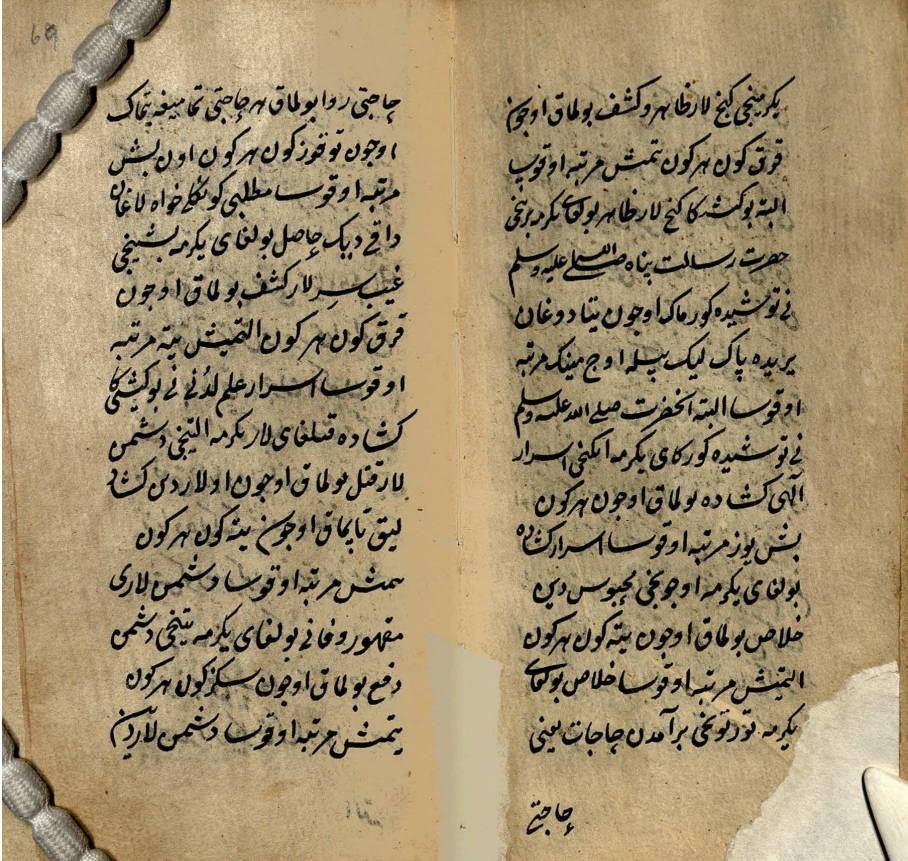 یکرمینجی کنج لار ظاهر و کشف بولماق اوجون
قرق کون هر کون یتمش مرتبه اوقوب
البته بو کشی کا کنج لار ظاهر بولغای یکرمه برنجی
حضرت رسالت پناه صلی الله علیه وسلم
نی توشیده کورماک اوجون یتادوغان
یریده پاک لیک بیله اوج مینک مرتبه
اوقوسا البته آنحضرت صلی الله علیه وسلم
نی توشیده کورکای یکرمه ایکنجی اسرار
الهی کشاده بولماق اوجون هر کون
بش یوز مرتبه اوقوسا اسرار کشاده
بولغای یکرمه اوجونجی محبوس دین
خلاص بولماق اوجون یته کون هر کون
التمیش مرتبه اوقوسا خلاص بولغای
یکرمه تورتونجی برآمدن حاجات یعنی
حاجتی
69
حاجتی روا بولماق هر حاجتی تمامیغه یتماک
اوجون توقوز کون هر کون اون بش
مرتبه اوقوسا مطلبی کونکلی خواه لاغان
داقی دیک حاصل بولغای یکرمه بشنجی
غیب سر لار کشف بولماق اوجون
قرق کون هر کون التمیش یته مرتبه
اوقوسا اسرار علم لدنی نی بو کیشیکا
کشاده قیلغای لار یکرمه التنجی دشمن
لار قتل بولماق اوجون اولار دین کشاد
لیق تابماق اوجون یته کون هر کون
یتمش مرتبه اوقوسا دشمن لاری
مقهور و فانی بولغای یکرمه یتنجی دشمن
دفع بولماق اوجون سکز کون هر کون
یتمش مرتبه اوقوسا دشمن لاردین